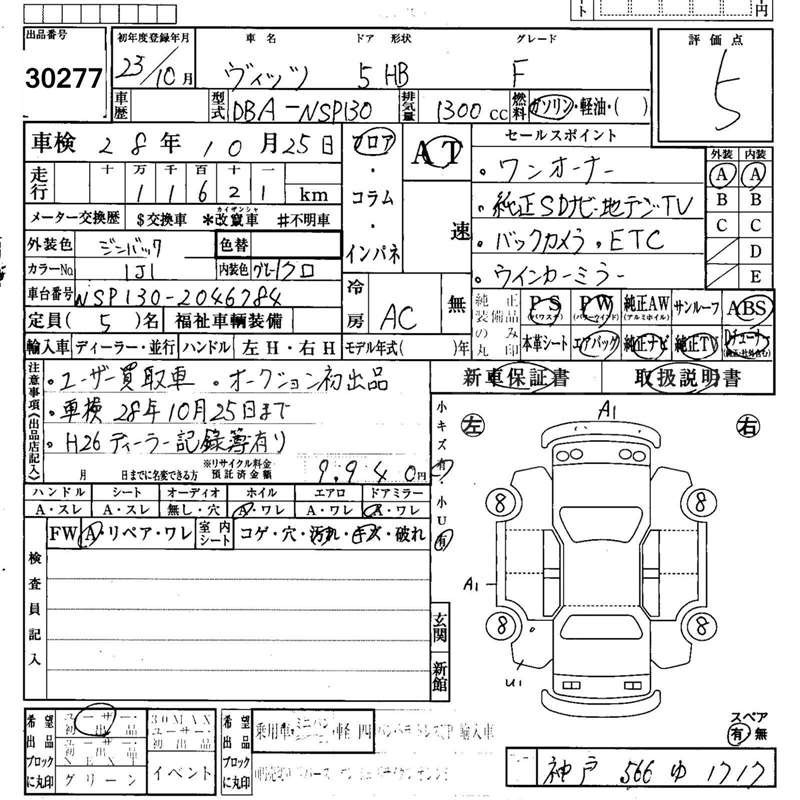 出品番号 初年度登録年月 車名 ドア 形状 グレード 評価点
30277 23/10月 ヴィッツ 5 HB F 5
車歴 型式 DBA-NSP130 排気量 1300cc 燃料 ガソリン・軽油・( )
車検 28年10月25日 フロア・コラム・インパネ AT 速 セールスポイント 外装 内装
・ワンオーナー A A
走行 十 万 千 百 十 一
1 1 6 2 1 km
・純正SDナビ・地デジTV B B
メーター交換歴 $交換車 *改竄車 カイザンシャ #不明車
・バックカメラ・ETC C C
外装色 色替 D
カラーNo. 1J1 内装色 グレー/クロ ・ウインカーミラー E
車台番号 NSP130-2046784 冷房 AC 無
純正装備品の済み丸印 PS (パワステ) PW (パワーウインド) 純正AW (アルミホイル) サンルーフ ABS
定員(5)名 福祉車輌装備 本革シート エアバッグ 純正ナビ 純正TV Dチューナー
輸入車 ディーラー・並行 ハンドル 左H・右H モデル年式( )年
注意事項(出品店記入)
・ユーザー買取車 ・オークション初出品 新車保証書 取扱説明書
・車検28年10月25日まで
・H26ディーラー記録簿有り
月 日までに名変できる方 ※リサイクル料金預託済金額 9,940円
小キズ有・小U有
左 A1 右
ハンドル シート オーディオ ホイル エアロ ドアミラー
A・スレ A・スレ 無し・穴 A・ワレ A・ワレ A・ワレ
8 8
FW A・リペア・ワレ 室内シート コゲ・穴・汚れ・キズ・破れ
検査員記入
A1
8 8
U1
玄関
新館
希望出品ブロックに丸印
ユーザー・初出品 30MAXユーザー・初出品
グリーン イベント
希望出品ブロックに丸印
乗用車 ミニバン 軽 四 輸入車
スペア
有・無
神戸 566 ゆ 1717